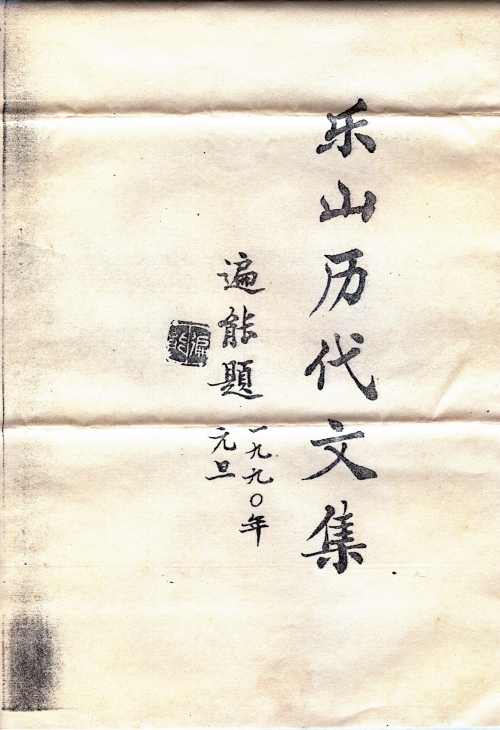 乐山历代文集
遍能题
一九九〇年
元旦
遍能